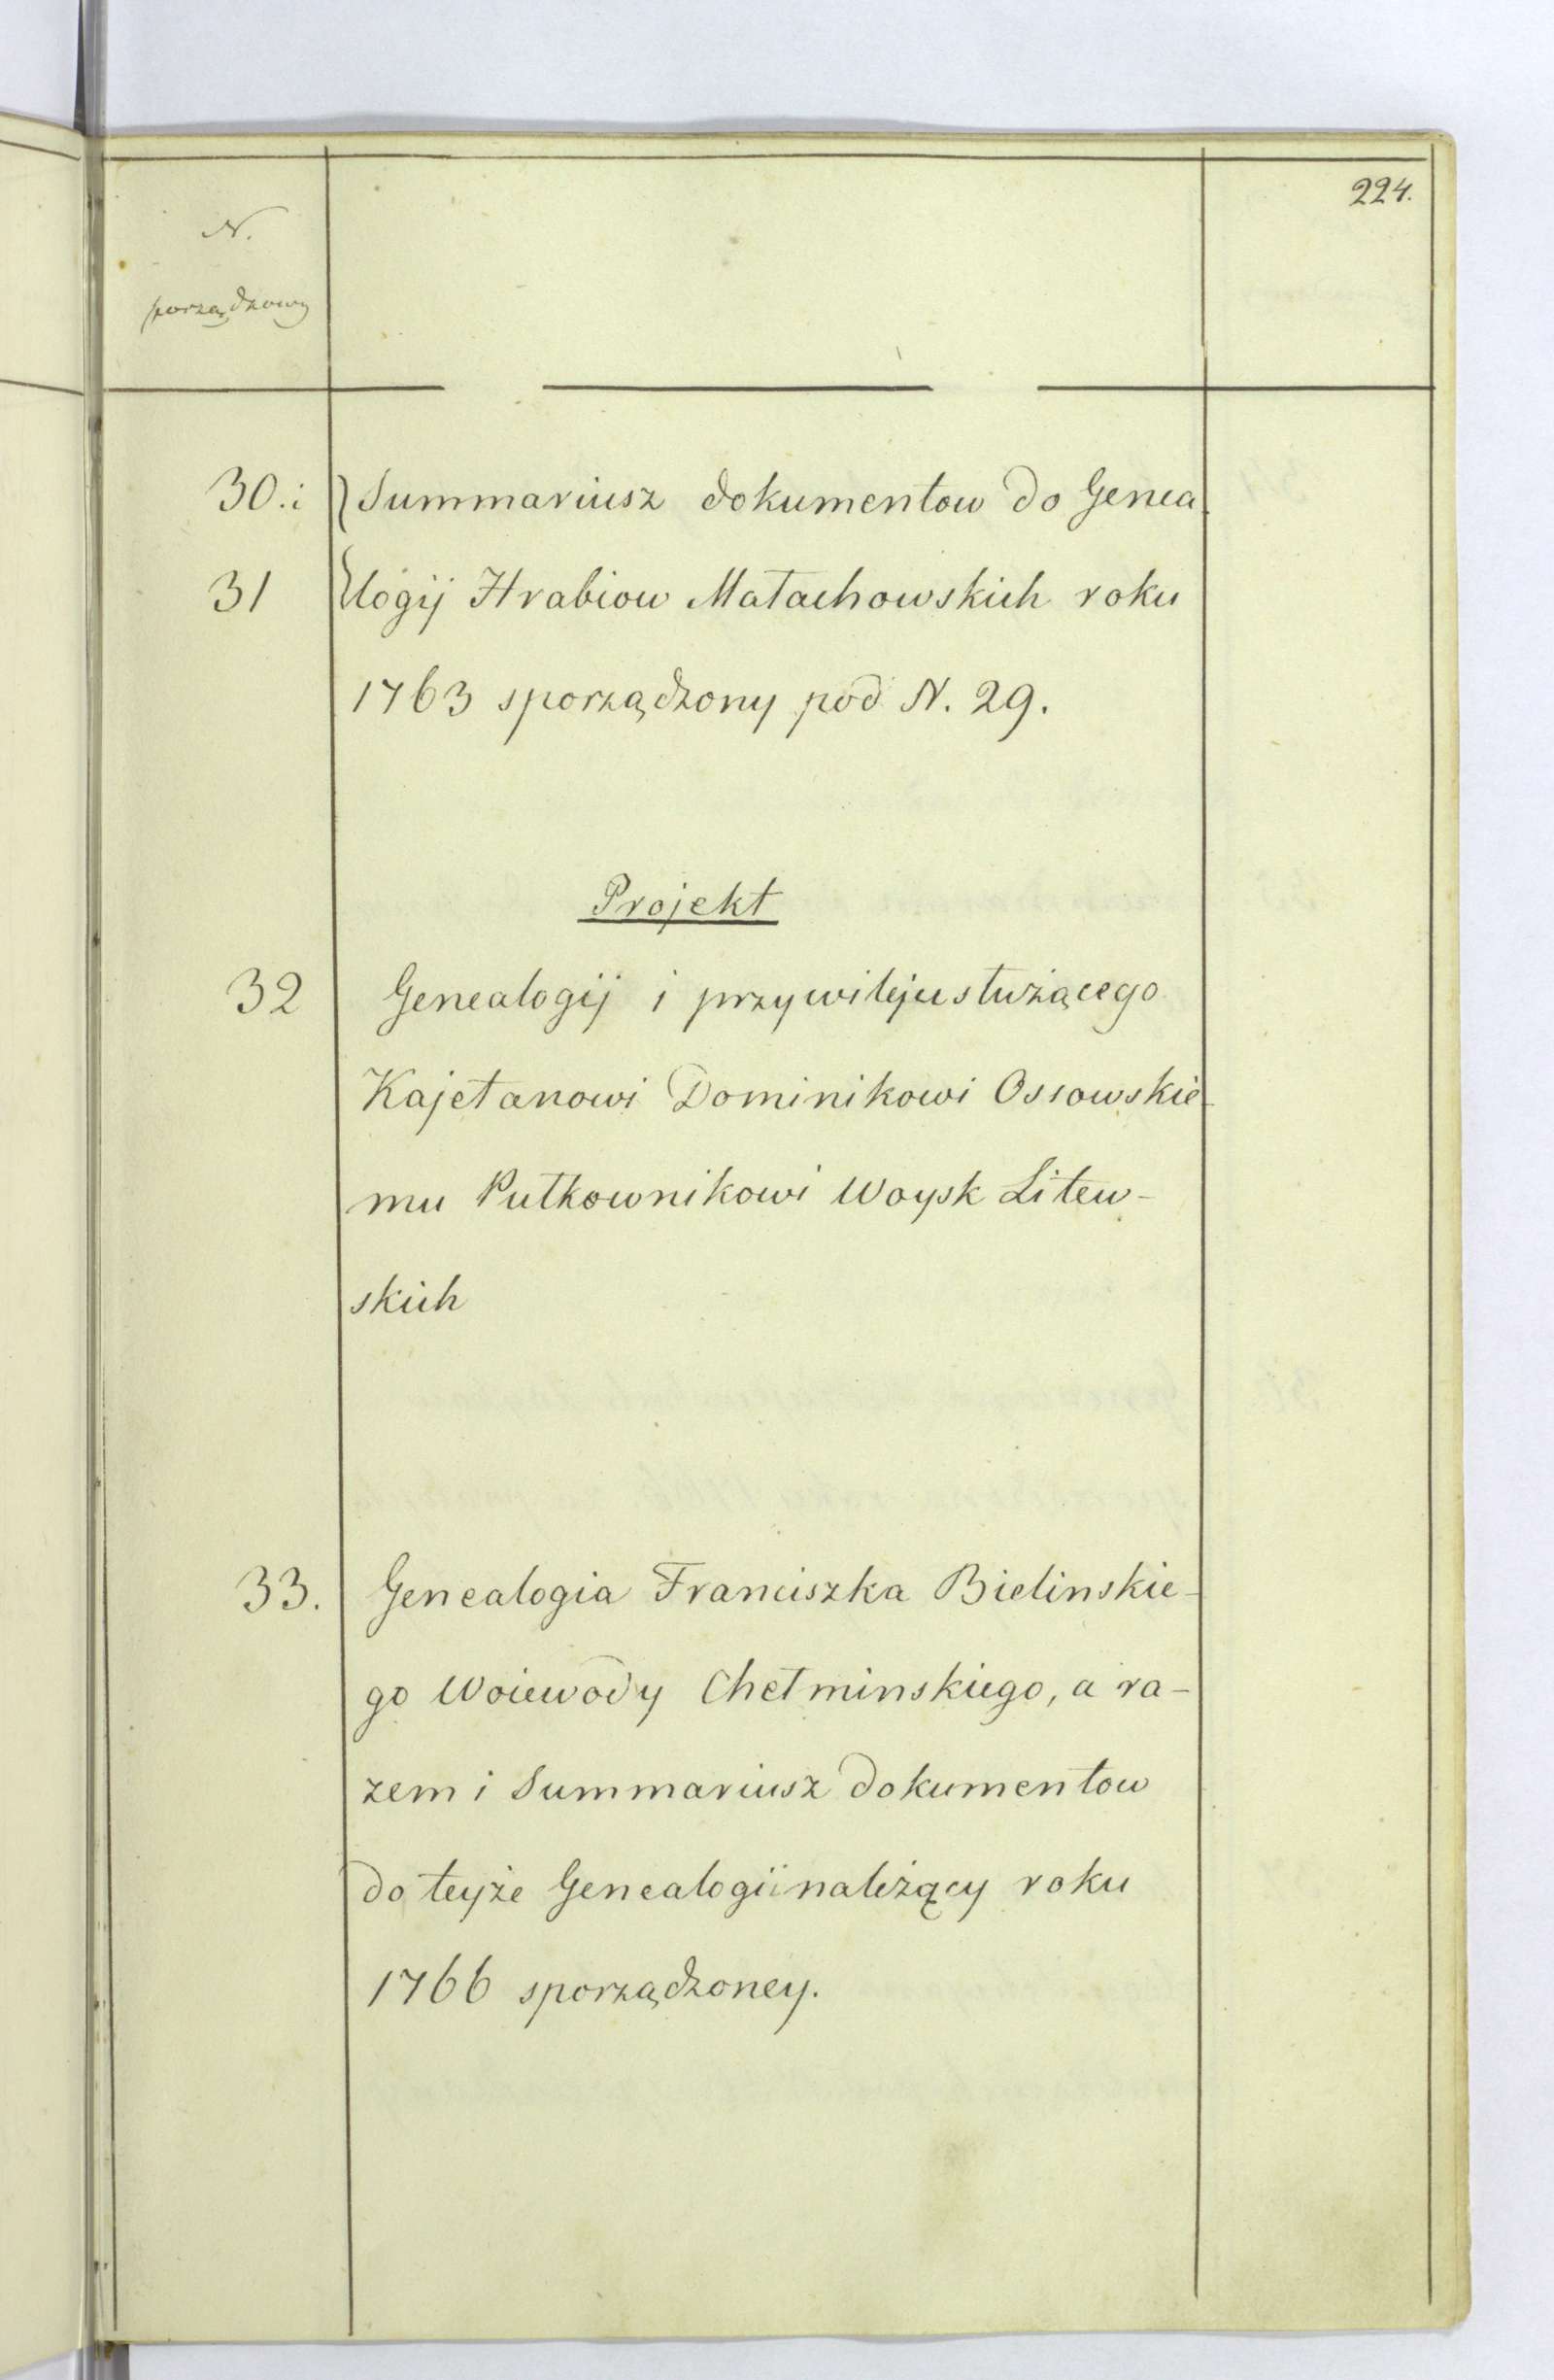 224.
N.
porządkowy
30. i Summariusz dokumentow do Genea-
31 logij Hrabiow Małachowskich roku
1763 sporządzony pod N. 29.
Projekt
32 Genealogij i przywileju służącego
Kajetanowi Dominikowi Ossowskie-
mu Pułkownikowi Woysk Litew-
skich
33. Genealogia Franciszka Bielinskie-
go Woiewody Chełminskiego, a ra-
zem i Summariusz dokumentow
do teyże Genealogii należący roku
1766 sporządzoney.